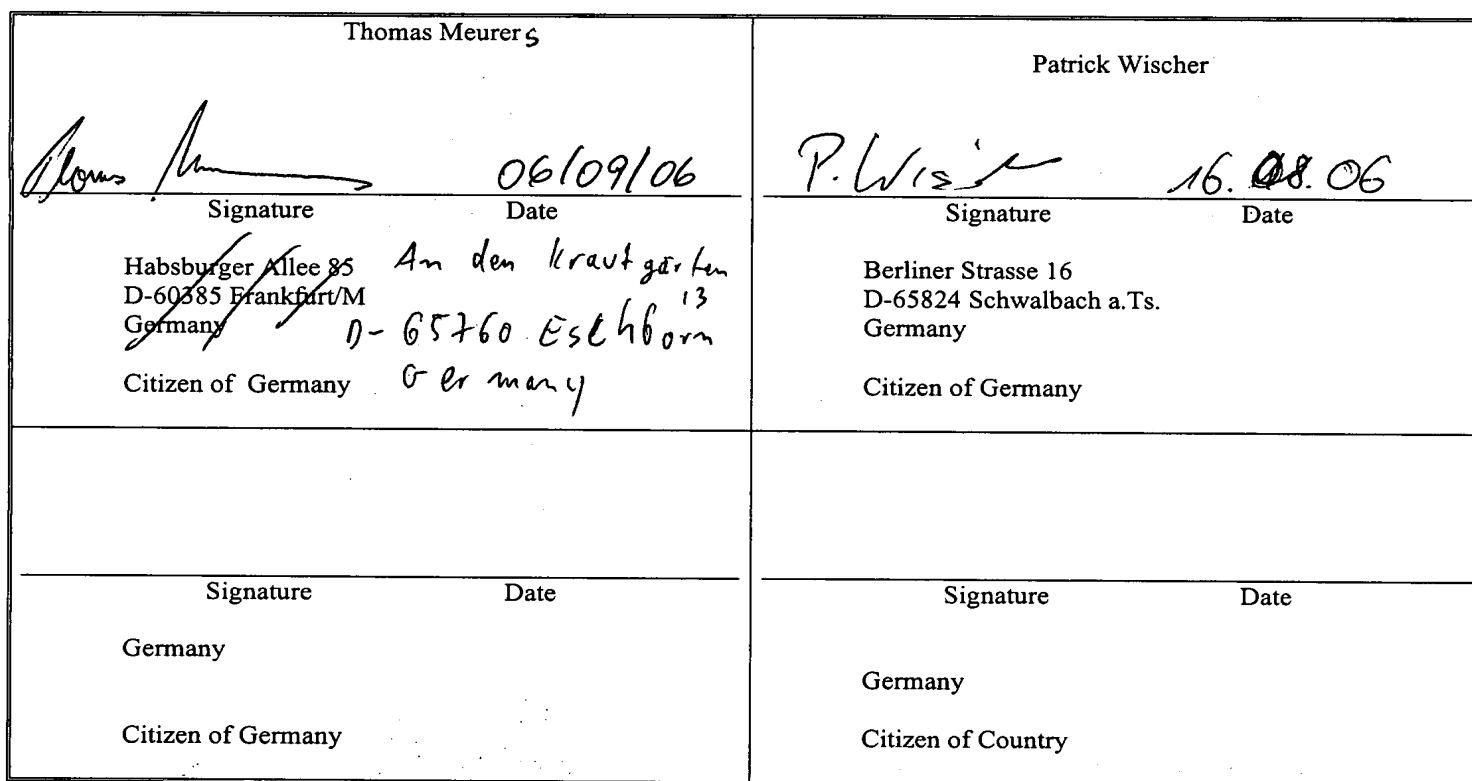 Thomas Meurers
Thomas 06/09/06
Signature Date
Habsburger Allee 85 An den Krautgärten
D-60385 Frankfurt/M 13
Germany D-65760 Eschborn
Citizen of Germany Germany
Patrick Wischer
P. Wischer 16. 08. 06
Signature Date
Berliner Strasse 16
D-65824 Schwalbach a.Ts.
Germany
Citizen of Germany
Signature Date
Germany
Citizen of Germany
Signature Date
Germany
Citizen of Country